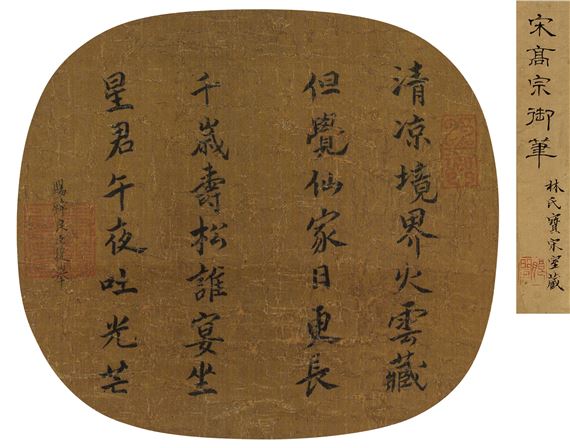 清凉境界火雲藏
但覺仙家日更長
千嵗壽松誰宴坐
星君午夜吐光芒
宋高宗御筆
林氏寶宋室藏